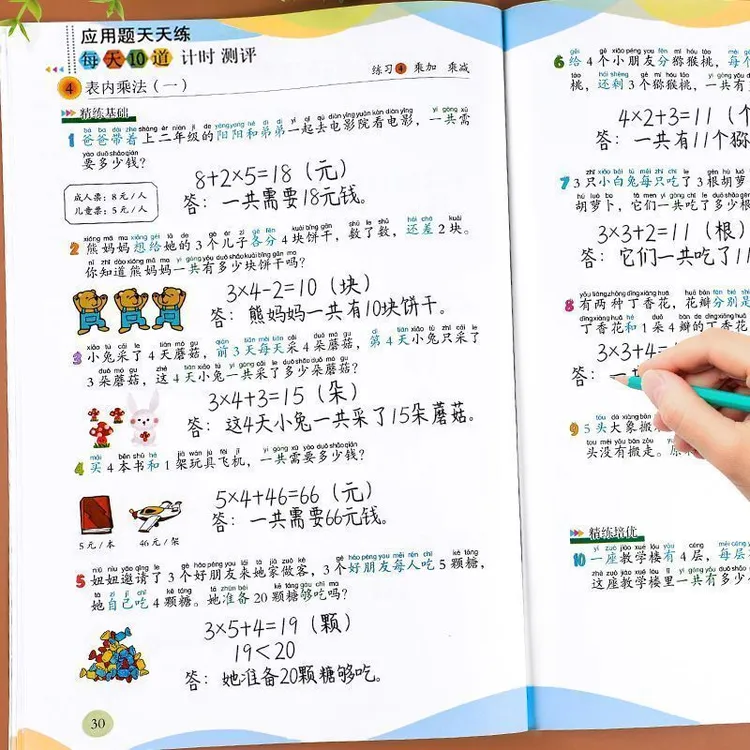 应用题天天练
每天10道 计时 测评
4 表内乘法(一)
练习4 乘加 乘减
精练基础
1 爸爸带着上二年级的阳阳和弟弟一起去电影院看电影,一共需
要多少钱?
成人票:8元/人
儿童票:5元/人
8+2×5=18(元)
答:一共需要18元钱。
2 熊妈妈想给她的3个儿子各分4块饼干,数了数,还差2块。
你知道熊妈妈一共有多少块饼干吗?
3×4-2=10(块)
答:熊妈妈一共有10块饼干。
3 小兔采了4天蘑菇,前3天每天采4朵蘑菇,第4天小兔只采了
3朵蘑菇,这4天小兔一共采了多少朵蘑菇?
3×4+3=15(朵)
答:这4天小兔一共采了15朵蘑菇。
4 买4本书和1架玩具飞机,一共需要多少钱?
5元/本 46元/架
5×4+46=66(元)
答:一共需要66元钱。
5 妞妞邀请了3个好朋友来她家做客,3个好朋友每人吃5颗糖,
她自己吃4颗糖。她准备20颗糖够吃吗?
3×5+4=19(颗)
19<20
答:她准备20颗糖够吃。
30
6 给4个小朋友分猕猴桃,每个
桃,还剩3个猕猴桃,一共有
4×2+3=11(个
答:一共有11个猕
7 3只小白兔每只吃了3根胡萝
胡萝卜,它们一共吃了多少根
3×3+2=11(根)
答:它们一共吃了11
8 有两种丁香花,花瓣分别是
丁香花和1朵4瓣的丁香花
3×3+4=
答:一
9 5头大象搬
头没有搬走。原
精练培优
10 一座教学楼有4层,每层
这座教学楼里一共有多少